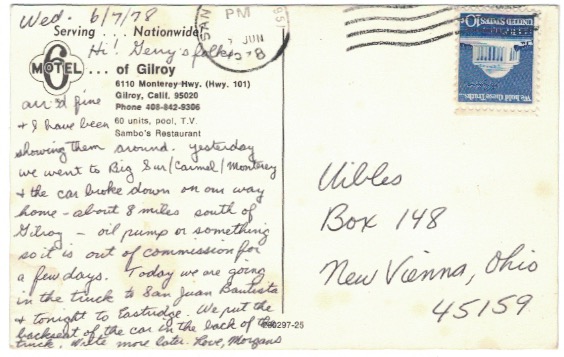 Wed. 6/7/78
Serving . . . Nationwide
Hi! Gerry's folks
6
MOTEL . . . of Gilroy
6110 Monterey Hwy. (Hwy. 101)
Gilroy, Calif. 95020
Phone 408-842-9306
60 units, pool, T.V.
Sambo's Restaurant
arr'd fine
& I have been
showing them around. yesterday
we went to Big Sur/Carmel/Monterey
& the car broke down on our way
home - about 8 miles south of
Gilroy - oil pump or something
so it is out of commission for
a few days. Today we are going
in the truck to San Juan Bautista
& tonight to Eastridge. We put the
backseat of the car in the back of the
truck. Write more later. Love, Morgans
290297-25
SAN
PM
7 JUN
951
UNITED STATES 10c
We hold these Truths...
Uibles
Box 148
New Vienna, Ohio
45159